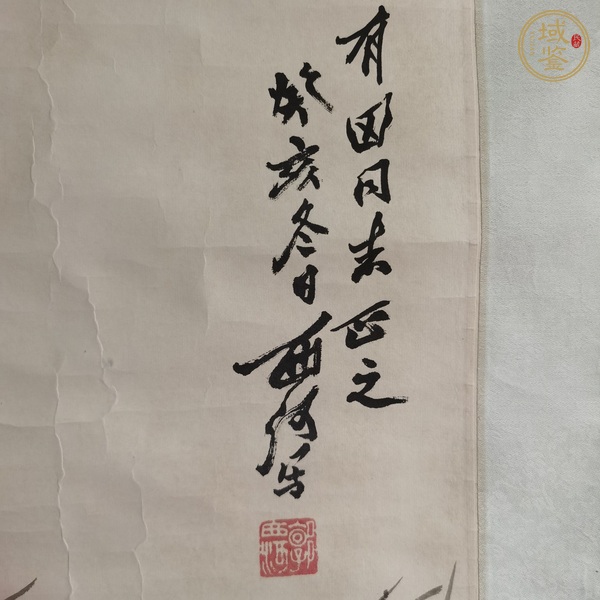 有因同志正之
癸亥冬日
西河写
域鉴